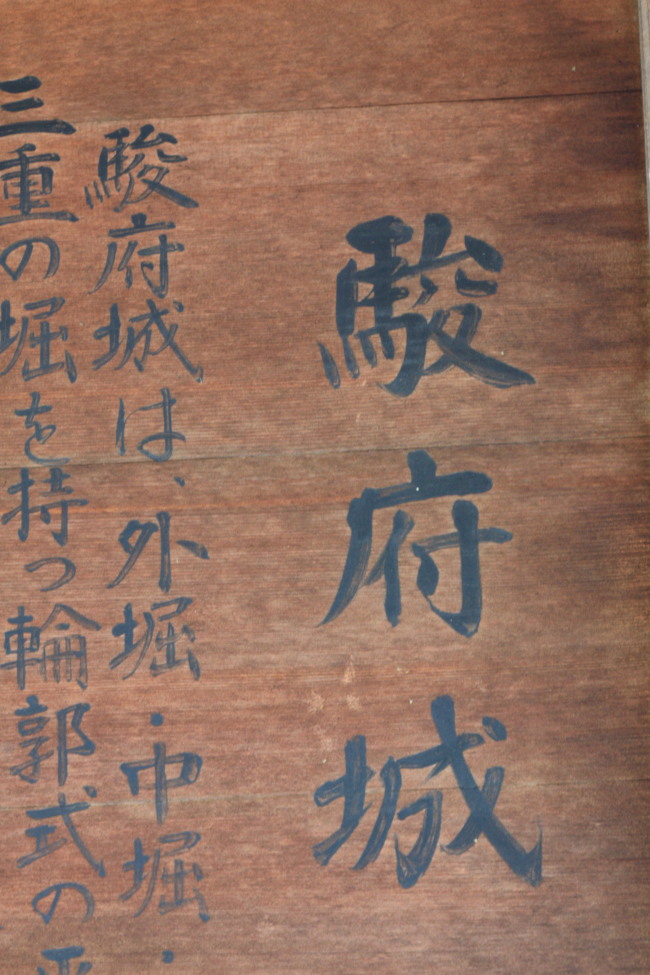 駿府城
駿府城は、外堀・中堀・
三重の堀を持つ輪郭式の平